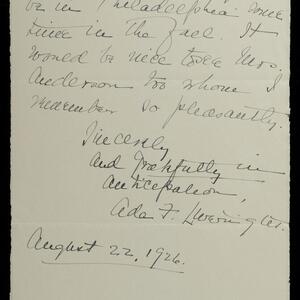 be in Philadelphia some
time in the Fall. It
would be nice to see Mrs.
Anderson too whom I
remember so pleasantly.
Sincerely
and gratefully in
anticipation,
Ada F.
August 22, 1926.